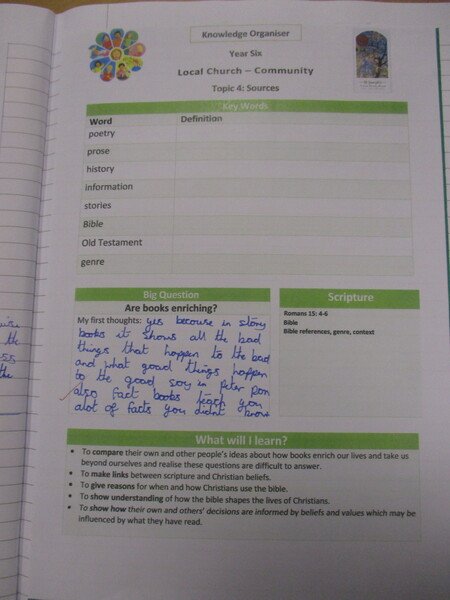 Knowledge Organiser
Year Six
Local Church – Community
Topic 4: Sources
Key Words
Word Definition
poetry
prose
history
information
stories
Bible
Old Testament
genre
Big Question
Are books enriching?
My first thoughts: yes because in story
books it shows all the bad
things that happen to the bad
and what good things happen
to the good soy in peter pan
also fact books teach you
alot of facts you didnt know
Scripture
Romans 15: 4-6
Bible
Bible references, genre, context
What will I learn?
• To compare their own and other people's ideas about how books enrich our lives and take us
beyond ourselves and realise these questions are difficult to answer.
• To make links between scripture and Christian beliefs.
• To give reasons for when and how Christians use the bible.
• To show understanding of how the bible shapes the lives of Christians.
• To show how their own and others' decisions are informed by beliefs and values which may be
influenced by what they have read.
the
the